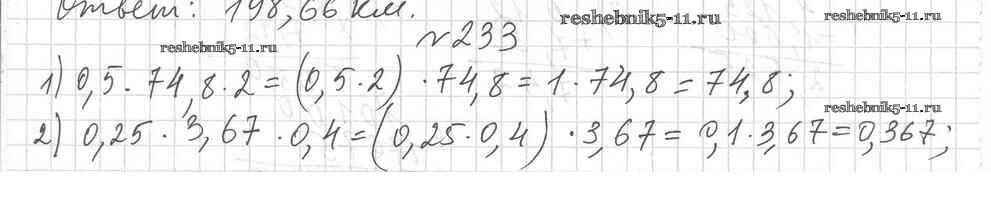 Ответ: 198,66 км.
reshebnik5-11.ru
reshebnik5-11.ru
№233
reshebnik5-11.ru
1) 0,5 · 74,8 · 2 = (0,5 · 2) · 74,8 = 1 · 74,8 = 74,8;
reshebnik5-11.ru
2) 0,25 · 3,67 · 0,4 = (0,25 · 0,4) · 3,67 = 0,1 · 3,67 = 0,367;